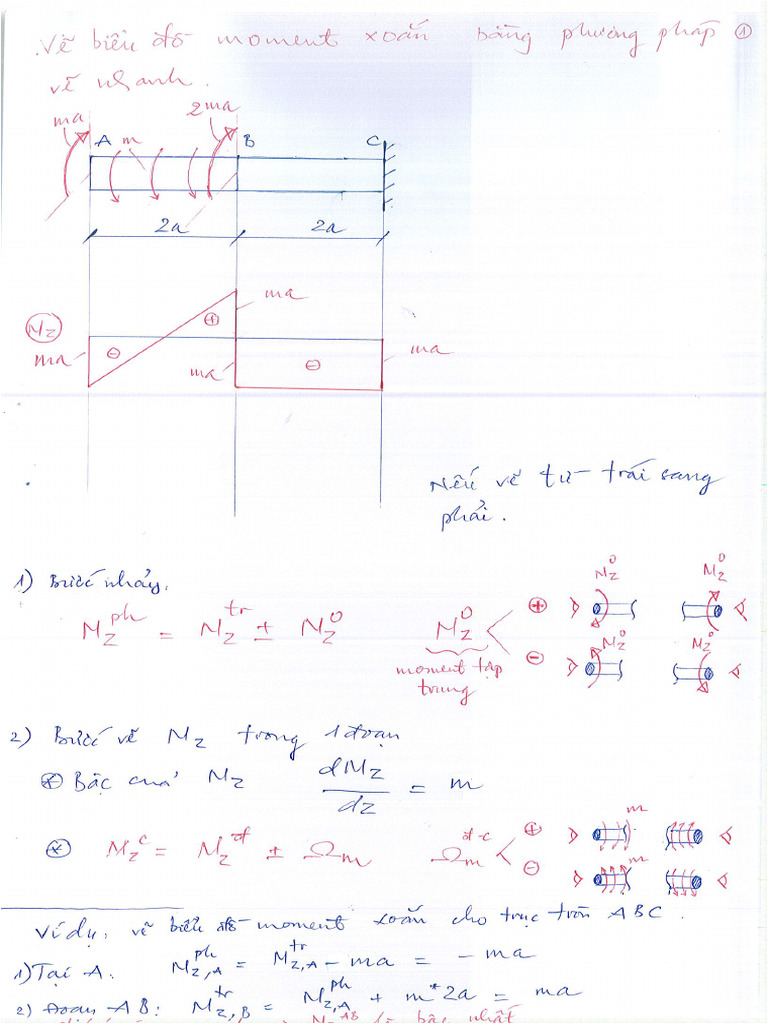 Vẽ biểu đồ moment xoắn bằng phương pháp ①
vẽ nhanh.
ma 2ma
A m B C
2a 2a
ma
Mz
ma ⊖ ⊕
ma ⊖ ma
Nếu vẽ từ trái sang
phải.
1) Bước nhảy.
Mz^ph = Mz^tr ± Mz^0
Mz^0 < ⊕ Mz^0 Mz^0
⊖ Mz^0 Mz^0
moment tập
trung
2) Bước vẽ Mz trong 1 đoạn
⊛ Bậc của Mz dMz/dz = m
⊛ Mz^c = Mz^đ ± Ωm Ωm^đ-c < ⊕ m
⊖ m
Ví dụ: vẽ biểu đồ moment xoắn cho trục tròn ABC.
1) Tại A: Mz,A^ph = Mz,A^tr - ma = -ma
2) Đoạn AB: Mz,B^tr = Mz,A^ph + m*2a = ma
Mz^AB là bậc nhất